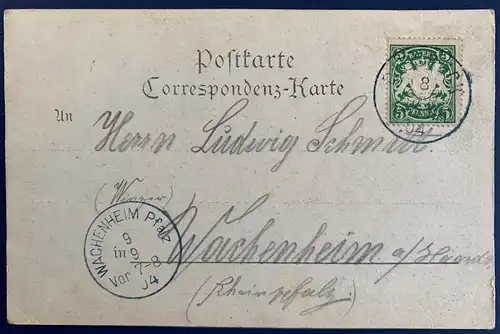 Postkarte
Correspondenz-Karte
BAYERN
8
5 5
PFENNIG
04
An Herrn Ludwig Schmidt
(Winzer)
Wachenheim a/Haardt
(Rheinpfalz)
WACHENHEIM Pfalz
9
in 9
Vor. 7-8
04